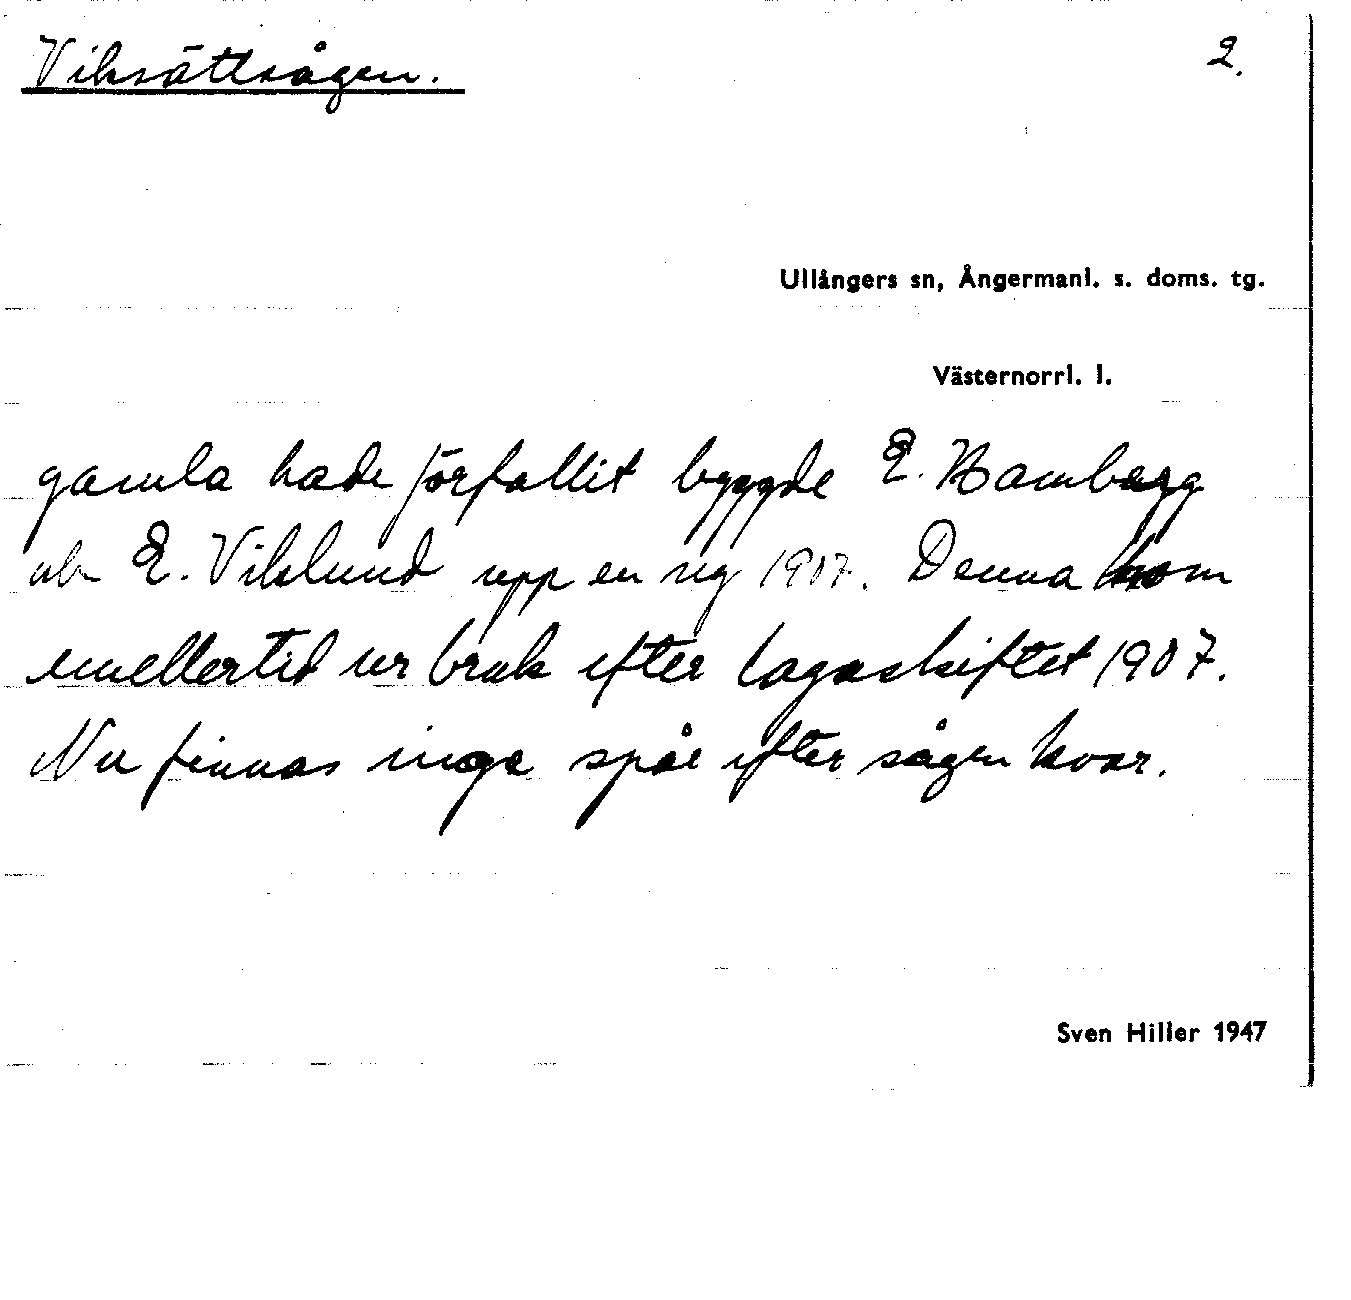 Viksättsågen.
2.
Ullångers sn, Ångermanl. s. doms. tg.
Västernorrl. l.
gamla hade förfallit byggde E. Hamberg
och E. Viklund upp en ny 1907. Denna kom
emellertid ur bruk efter lagaskiftet 1907.
Nu finnas inga spår efter sågen kvar.
Sven Hiller 1947